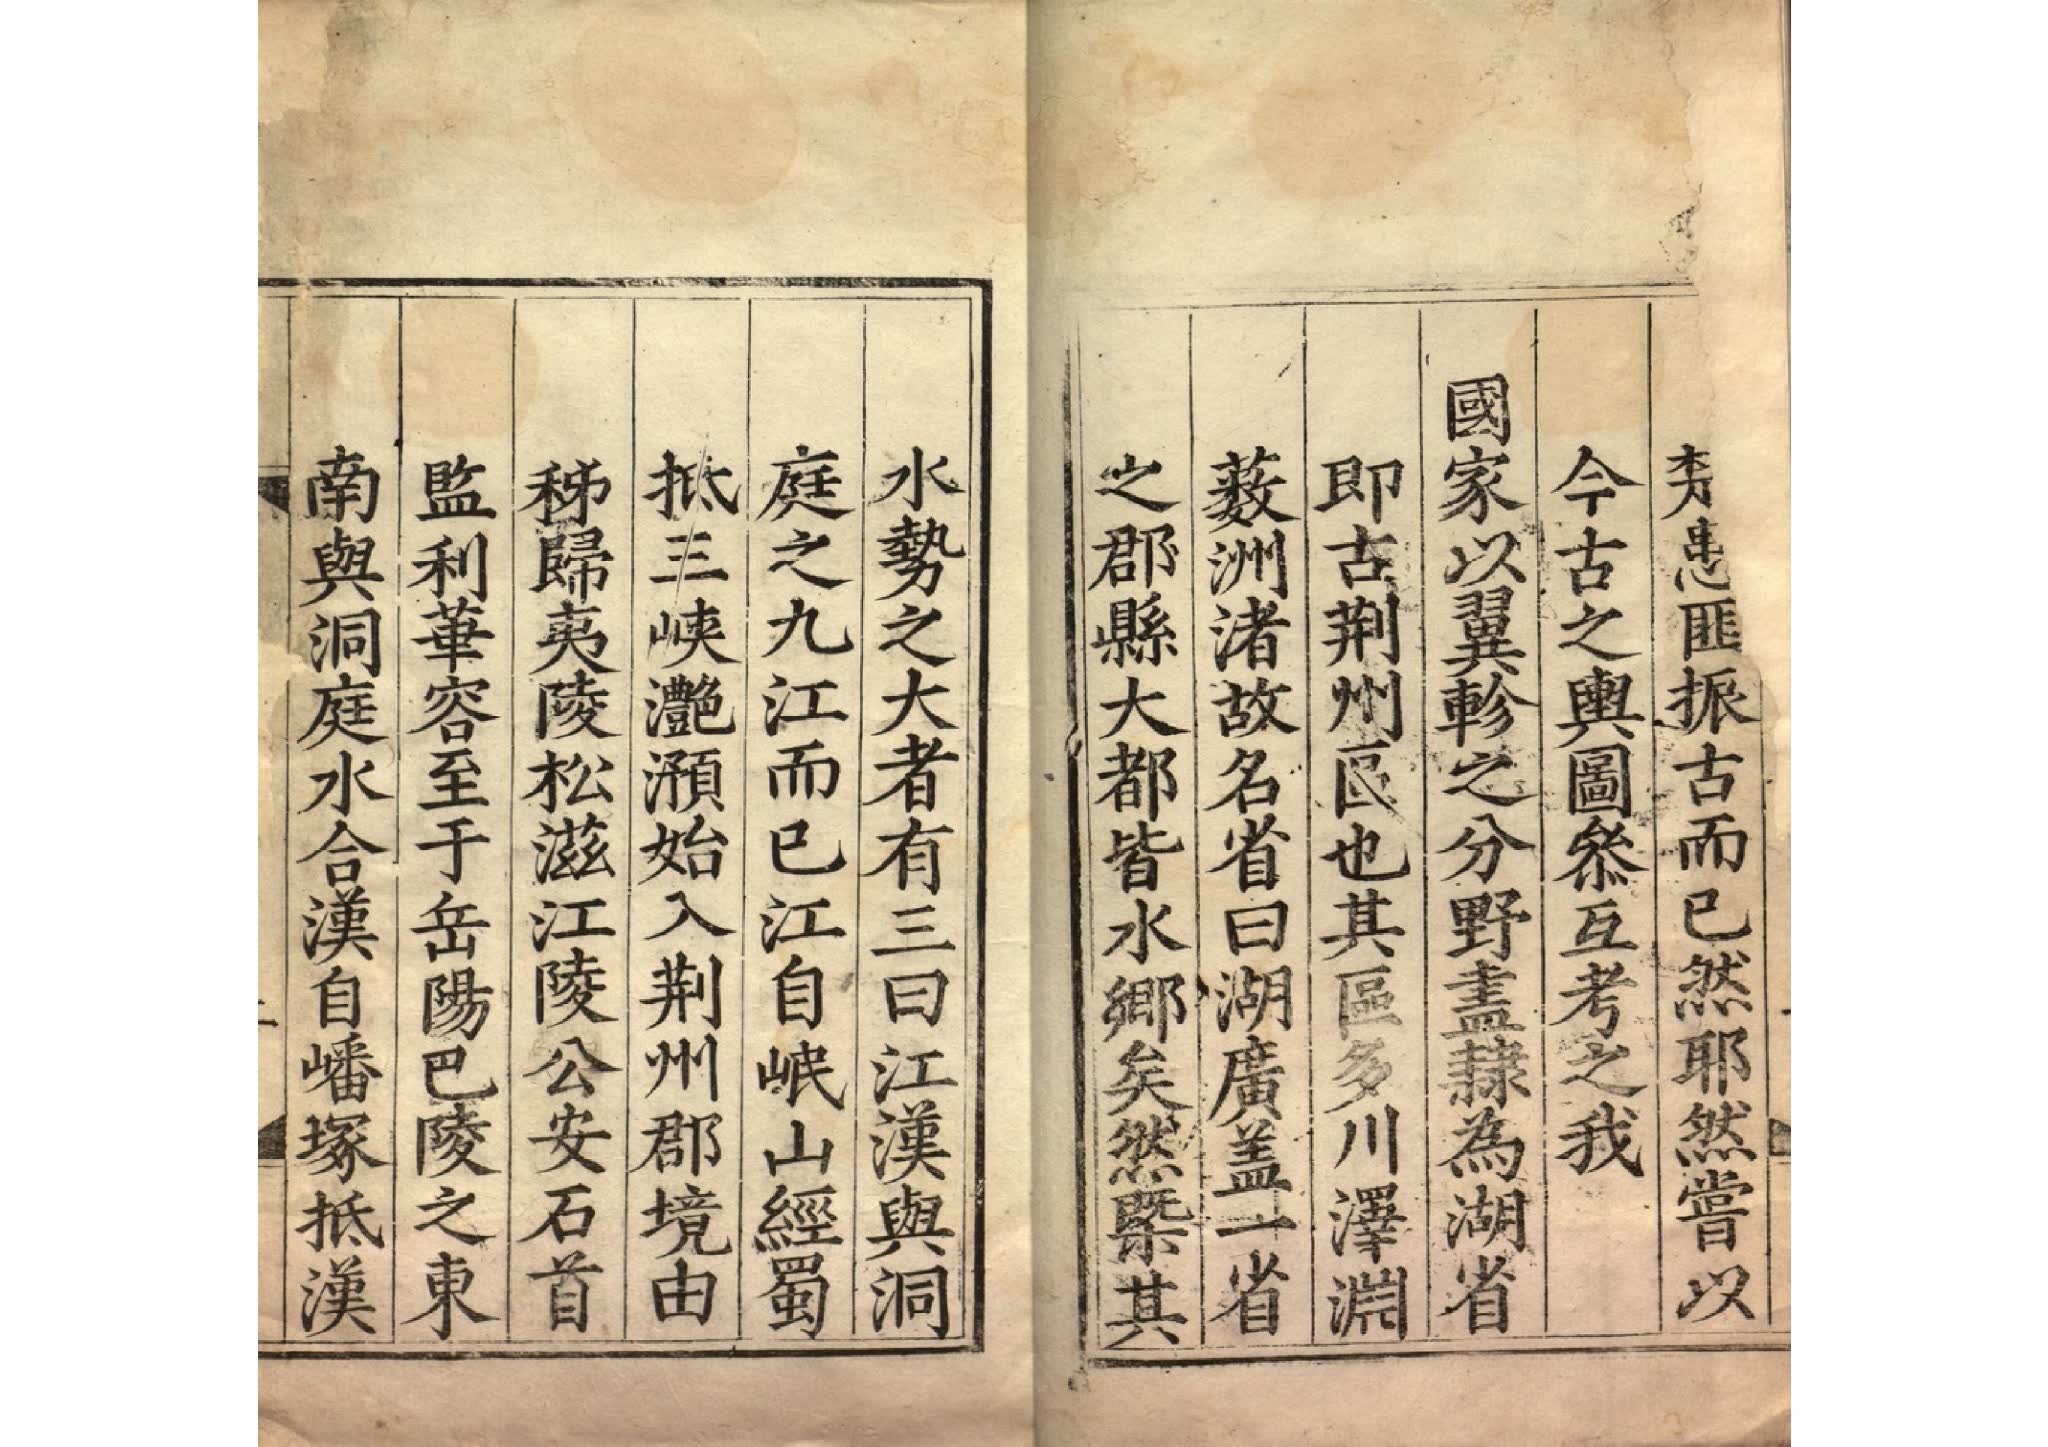 患匪振古而已然耶然嘗以
今古之輿圖叅互考之我
國家以翼軫之分野盡隸為湖省
即古荆州區也其區多川澤淵
藪洲渚故名省曰湖廣盖一省
之郡縣大都皆水鄉矣然槩其
水勢之大者有三曰江漢與洞
庭之九江而已江自岷山經蜀
抵三峽灧澦始入荆州郡境由
秭歸夷陵松滋江陵公安石首
監利華容至于岳陽巴陵之東
南與洞庭水合漢自嶓塚抵漢